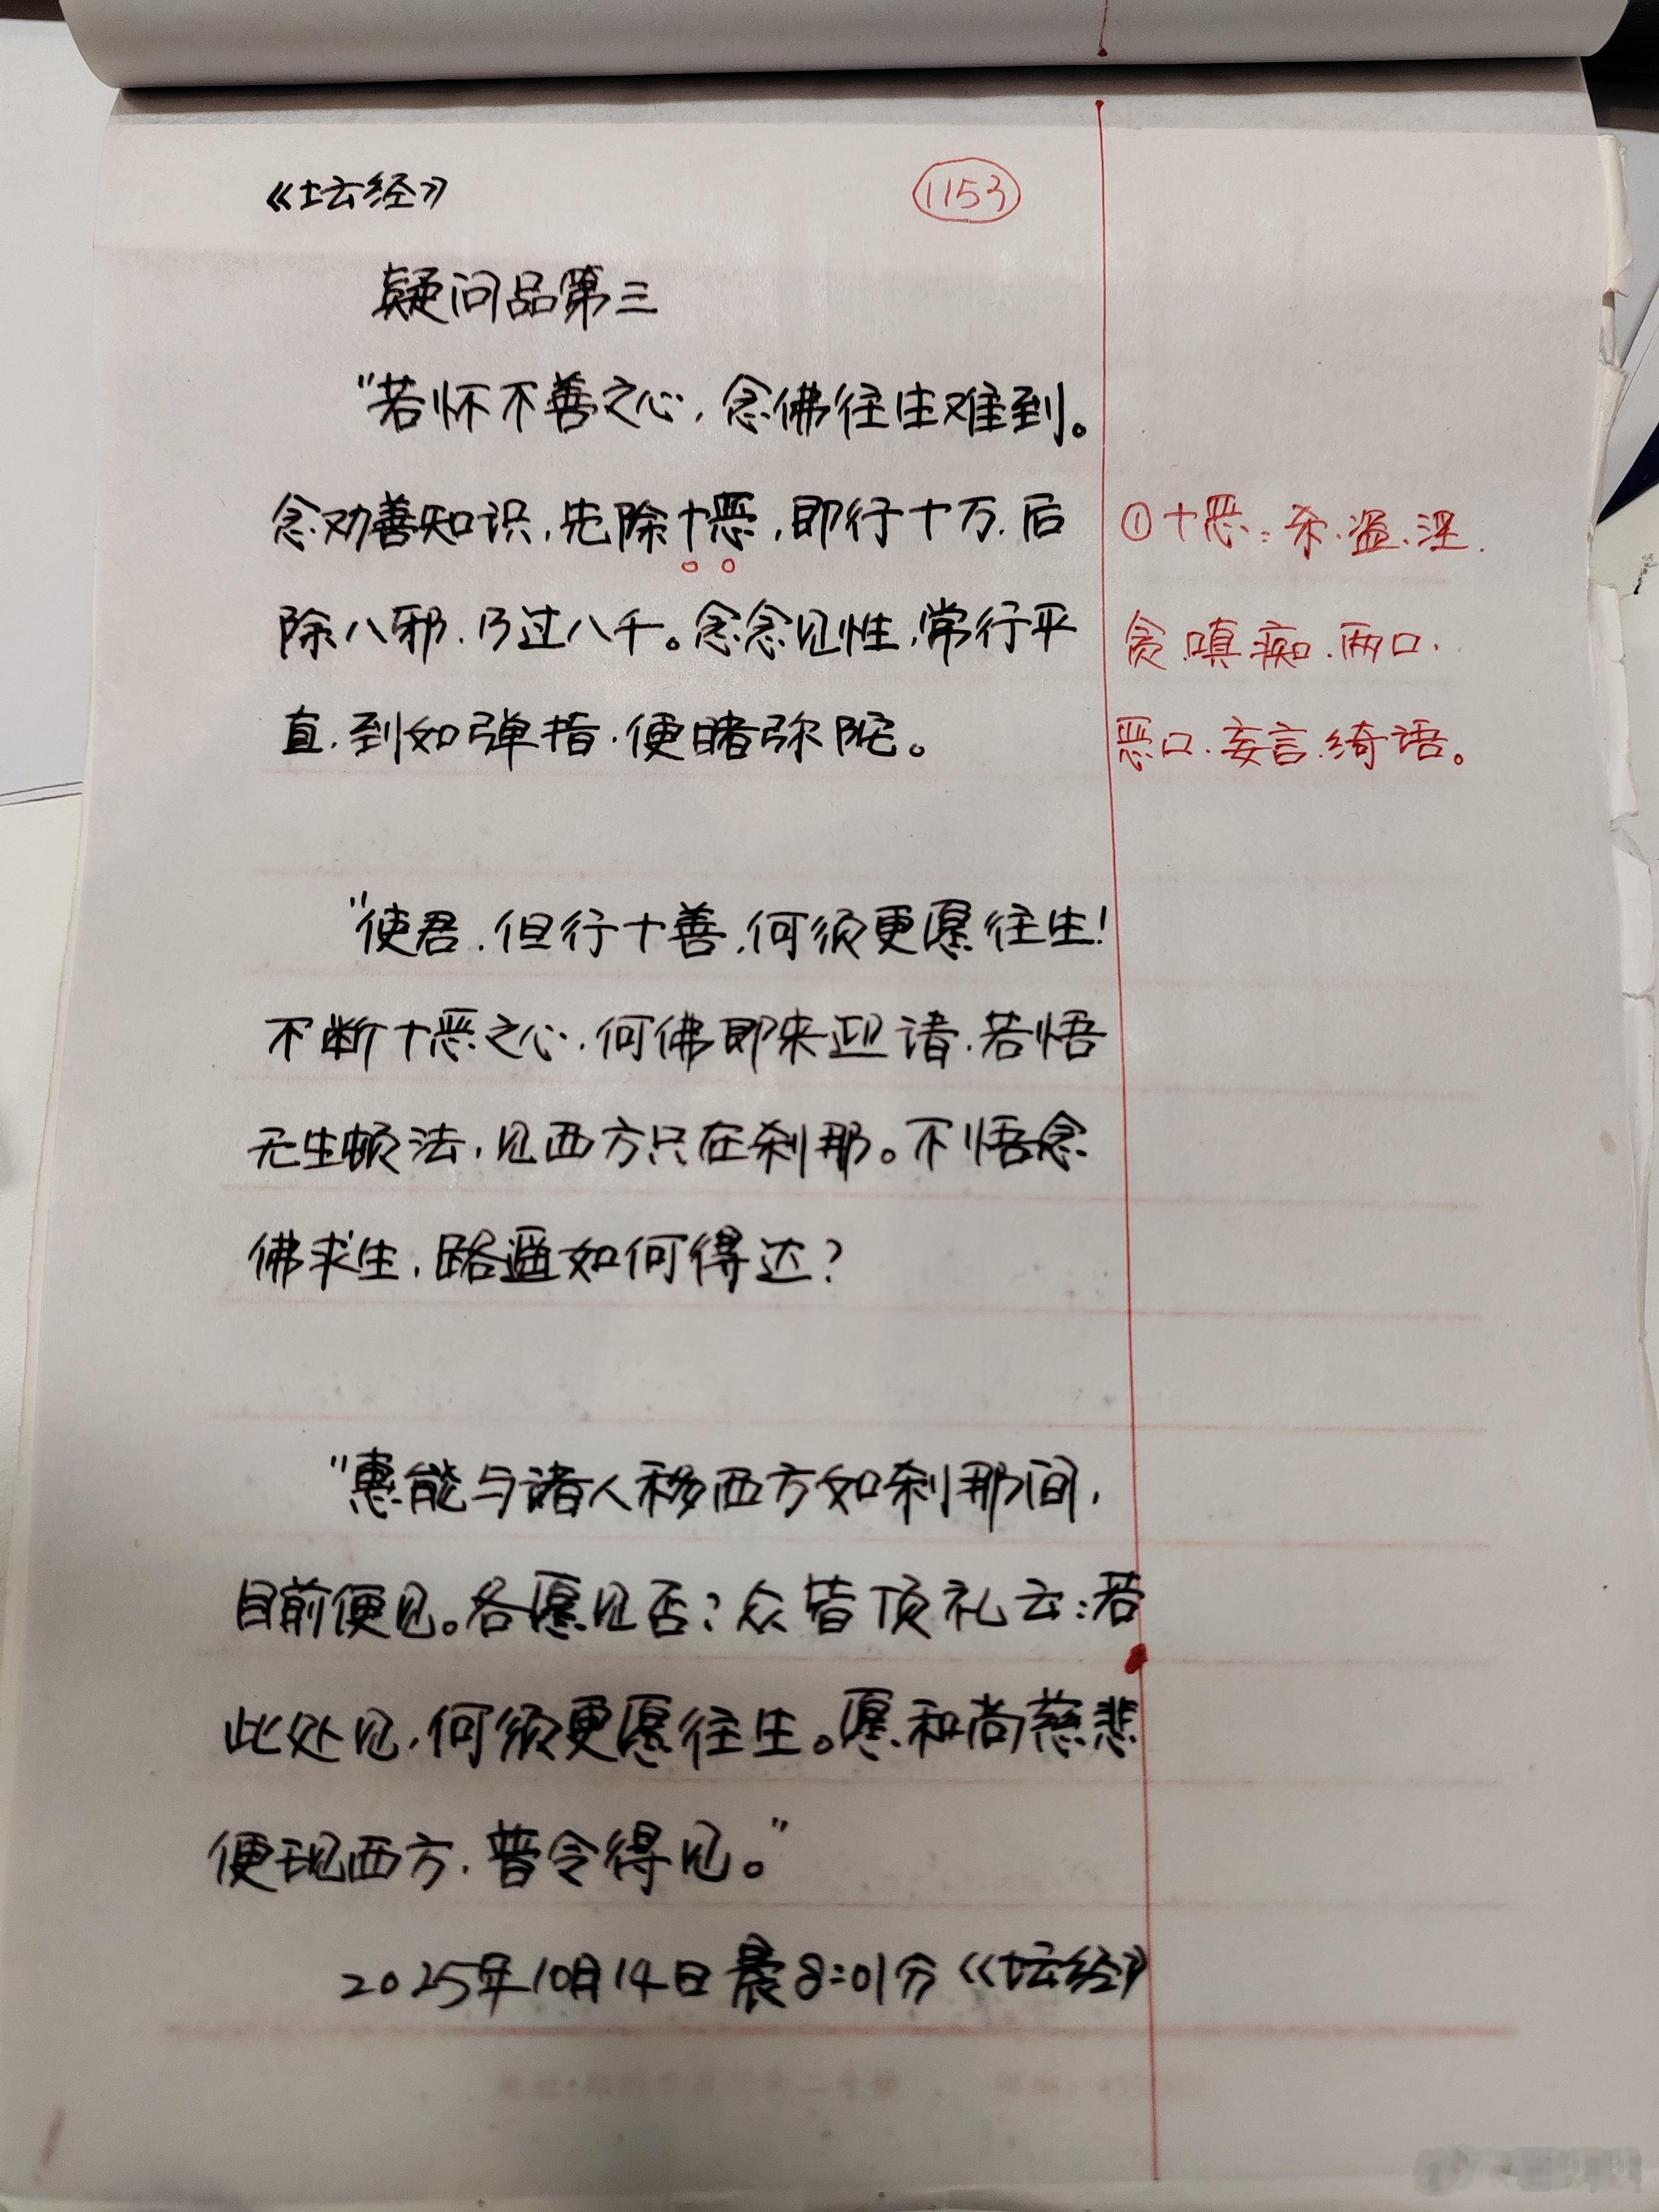 《坛经》
1153
疑问品第三
"若怀不善之心，念佛往生难到。
念劝善知识，先除十恶，即行十万，后
①十恶：杀、盗、淫、
除八邪，乃过八千。念念见性，常行平
贪、嗔、痴、两口、
直，到如弹指，便睹弥陀。
恶口、妄言、绮语。
"使君，但行十善，何须更愿往生！
不断十恶之心，何佛即来迎请，若悟
无生顿法，见西方只在刹那。不悟念
佛求生，路遥如何得达？
"惠能与诸人移西方如刹那间，
目前便见。各愿见否？众皆顶礼云：若
此处见，何须更愿往生。愿和尚慈悲
便现西方，普令得见。"
2025年10月14日晨8:01分《坛经》